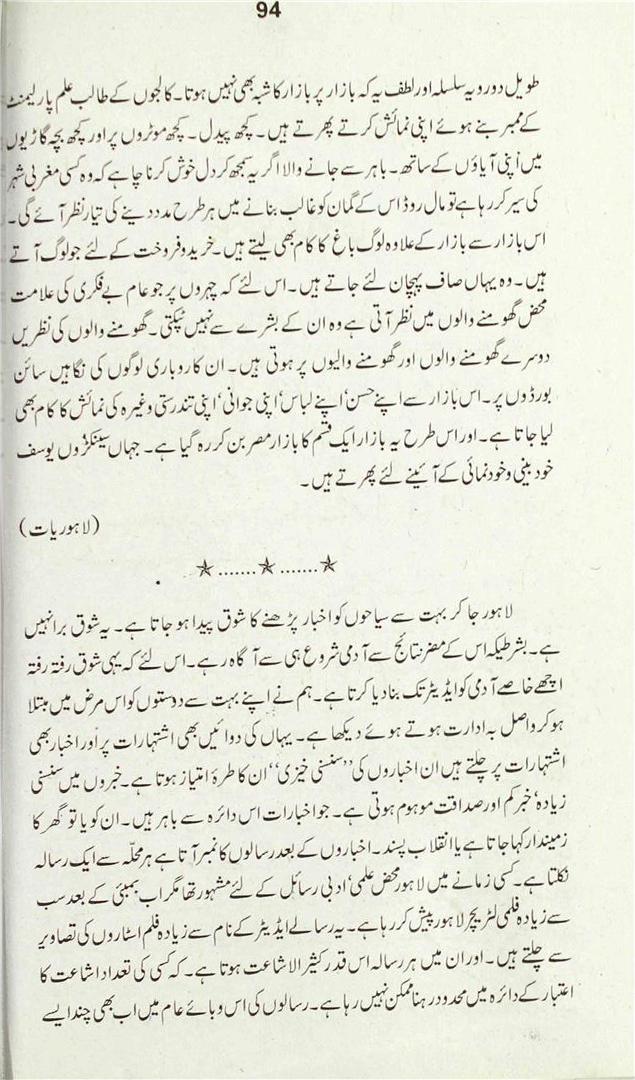 94
طویل دورویہ سلسلہ اور لطف یہ کہ بازار پر بازار کا شبہ بھی نہیں ہوتا۔ کالجوں کے طالب علم پارلیمنٹ
کے ممبر بنے ہوئے اپنی نمائش کرتے پھرتے ہیں۔ کچھ پیدل۔ کچھ موٹروں پر اور کچھ بچہ گاڑیوں
میں اپنی آیاؤں کے ساتھ۔ باہر سے جانے والا اگر یہ سمجھ کر دل خوش کرنا چاہے کہ وہ کسی مغربی شہر
کی سیر کر رہا ہے تو مال روڈ اس کے گمان کو غالب بنانے میں ہر طرح مدد دینے کی تیار نظر آئے گی۔
اس بازار سے بازار کے علاوہ لوگ باغ کا کام بھی لیتے ہیں۔ خرید و فروخت کے لئے جو لوگ آتے
ہیں۔ وہ یہاں صاف پہچان لئے جاتے ہیں۔ اس لئے کہ چہروں پر جو عام بے فکری کی علامت
محض گھومنے والوں میں نظر آتی ہے وہ ان کے بشرے سے نہیں ٹپکتی۔ گھومنے والوں کی نظریں
دوسرے گھومنے والوں اور گھومنے والیوں پر ہوتی ہیں۔ ان کاروباری لوگوں کی نگاہیں سائن
بورڈوں پر۔ اس بازار سے اپنے حسن‘ اپنے لباس‘ اپنی جوانی‘ اپنی تندرستی وغیرہ کی نمائش کا کام بھی
لیا جاتا ہے۔ اور اس طرح یہ بازار ایک قسم کا بازار مصر بن کر رہ گیا ہے۔ جہاں سینکڑوں یوسف
خود بینی و خود نمائی کے آئینے لئے پھرتے ہیں۔
(لاہوریات)
☆.......☆.......☆
لاہور جا کر بہت سے سیاحوں کو اخبار پڑھنے کا شوق پیدا ہو جاتا ہے۔ یہ شوق برا نہیں
ہے۔ بشرطیکہ اس کے مضر نتائج سے آدمی شروع ہی سے آگاہ رہے۔ اس لئے کہ یہی شوق رفتہ رفتہ
اچھے خاصے آدمی کو ایڈیٹر تک بنا دیا کرتا ہے۔ ہم نے اپنے بہت سے دوستوں کو اس مرض میں مبتلا
ہو کر واصل بہ ادارت ہوتے ہوئے دیکھا ہے۔ یہاں کی دوائیں بھی اشتہارات پر اور اخبار بھی
اشتہارات پر چلتے ہیں ان اخباروں کی ’’سنسنی خیزی‘‘ ان کا طرۂ امتیاز ہوتا ہے۔ خبروں میں سنسنی
زیادہ‘ خبر کم اور صداقت موہوم ہوتی ہے۔ جو اخبارات اس دائرہ سے باہر ہیں۔ ان کو یا تو گھر کا
زمیندار کہا جاتا ہے یا انقلاب پسند۔ اخباروں کے بعد رسالوں کا نمبر آتا ہے ہر محلّہ سے ایک رسالہ
نکلتا ہے۔ کسی زمانے میں لاہور محض علمی‘ ادبی رسائل کے لئے مشہور تھا مگر اب بمبئی کے بعد سب
سے زیادہ فلمی لٹریچر لاہور پیش کر رہا ہے۔ یہ رسالے ایڈیٹر کے نام سے زیادہ فلم اسٹاروں کی تصاویر
سے چلتے ہیں۔ اور ان میں ہر رسالہ اس قدر کثیر الاشاعت ہوتا ہے۔ کہ کسی کی تعداد اشاعت کا
اعتبار کے دائرہ میں محدود رہنا ممکن نہیں رہا ہے۔ رسالوں کی اس وبائے عام میں اب بھی چند ایسے